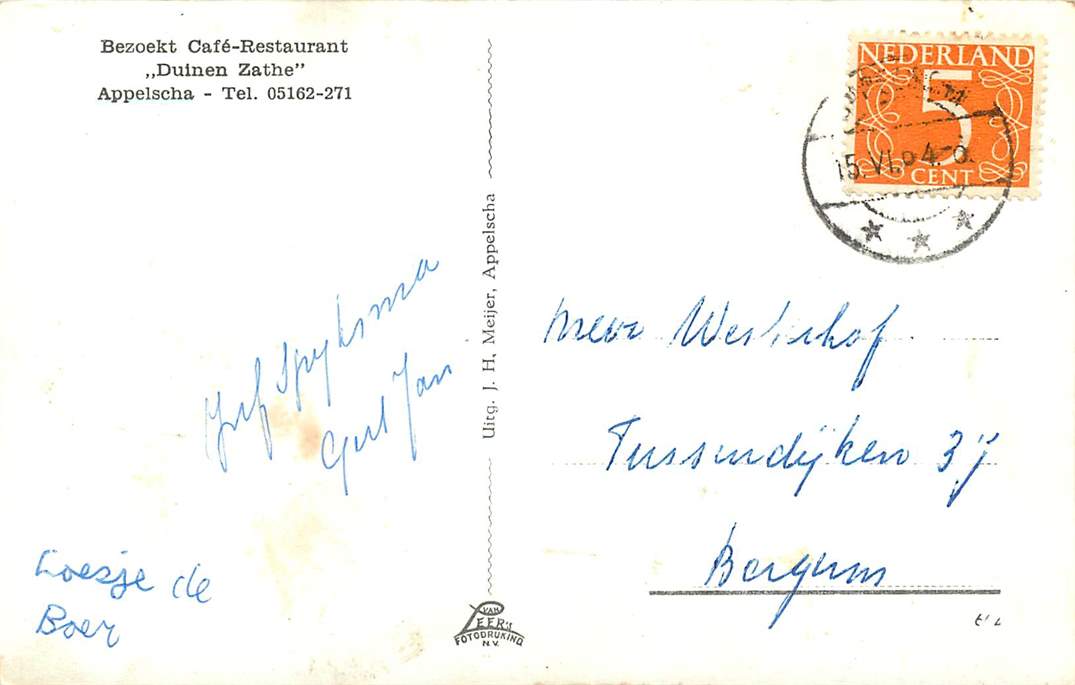 Bezoekt Café-Restaurant
„Duinen Zathe”
Appelscha - Tel. 05162-271
NEDERLAND
5
CENT
15.VI.
Uitg. J. H. Meijer, Appelscha
Juf Spijksma
Gert Jan
Loesje de
Boer
mevr Westerhof
Tussendijken 37
Bergum
VAN
LEER'S
FOTODRUKING
N.V.